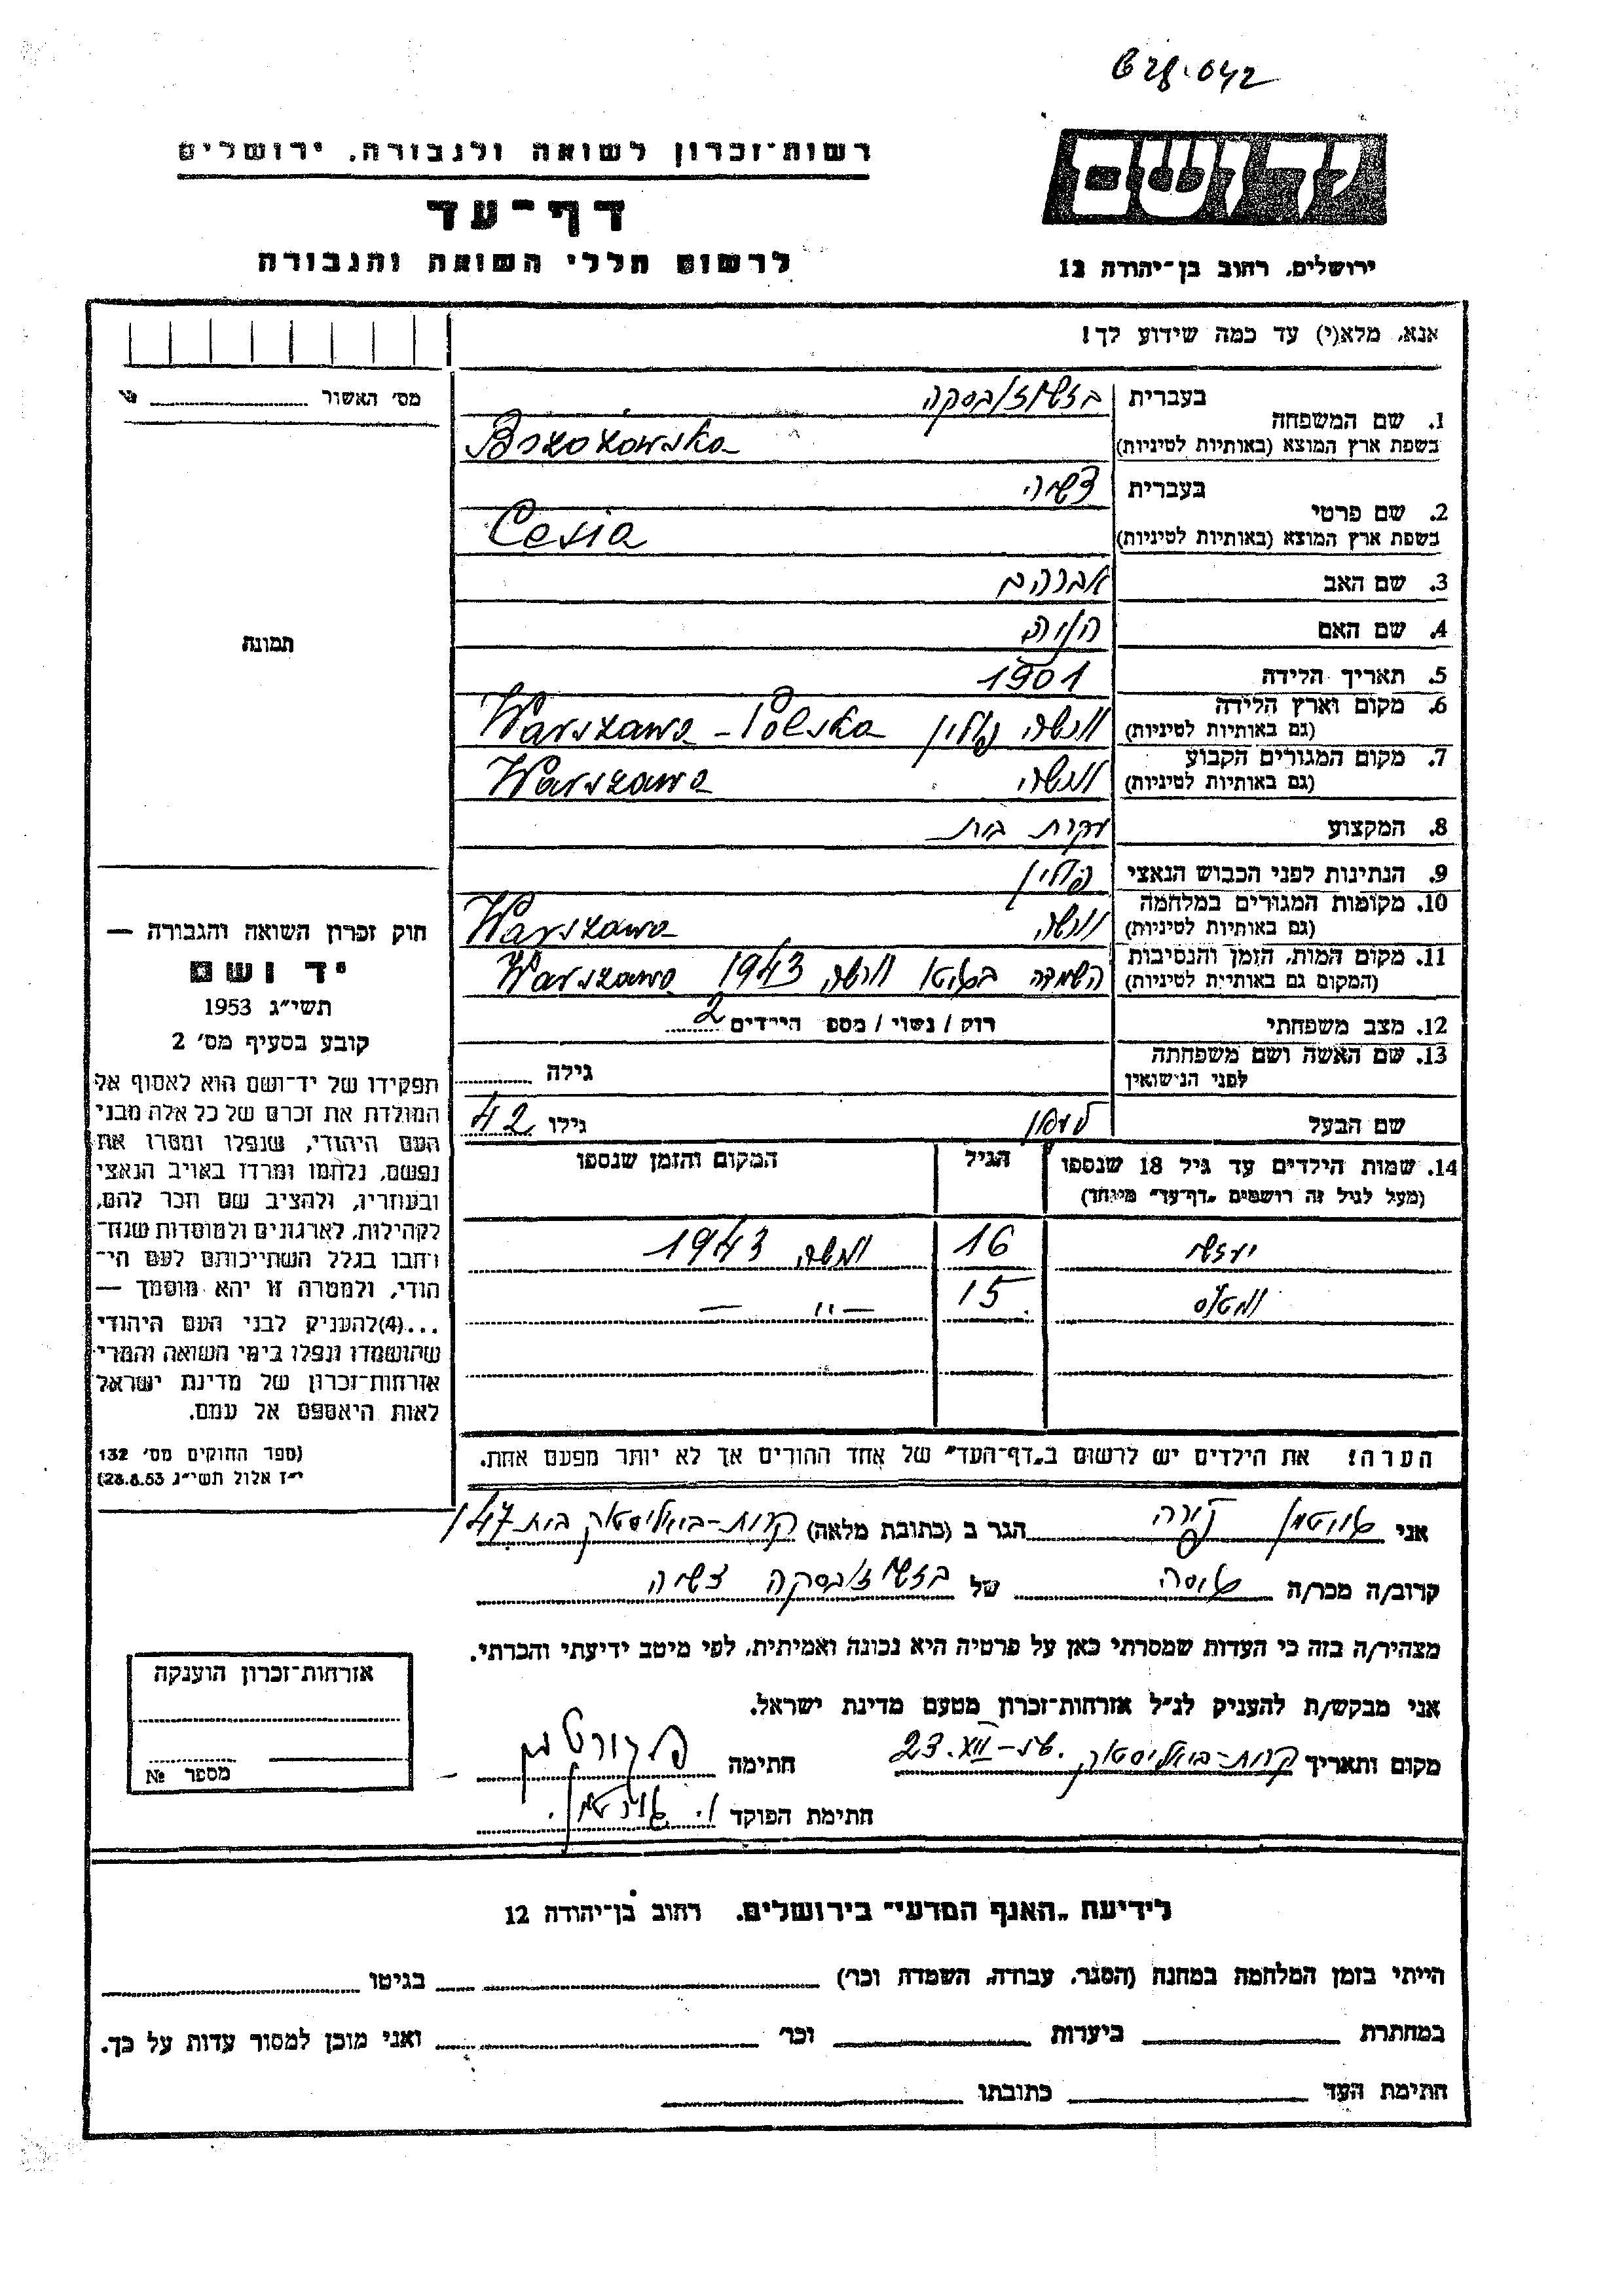 628.042
רשות־זכרון לשואה ולגבורה, ירושלים
דף־עד
לרשום חללי השואה והגבורה
ידושם
ירושלים, רחוב בן־יהודה 12
אנא, מלא(י) עד כמה שידוע לך!
מס׳ האשור №
תמונה
1. שם המשפחה
בעברית בז׳וז׳ובסקה
בשפת ארץ המוצא (באותיות לטיניות) Bszozowska
2. שם פרטי
בעברית צשיה
בשפת ארץ המוצא (באותיות לטיניות) Cesia
3. שם האב אברהם
4. שם האם
5. תאריך הלידה 1901
6. מקום וארץ הלידה
(גם באותיות לטיניות) ורשה פולין Warszawa - Polska
7. מקום המגורים הקבוע
(גם באותיות לטיניות) ורשה Warszawa
8. המקצוע עקרת בית
9. הנתינות לפני הכבוש הנאצי פולין
10. מקומות המגורים במלחמה
(גם באותיות לטיניות) ורשה Warszawa
11. מקום המות, הזמן והנסיבות
(המקום גם באותיית לטיניות) השמדה בגטו ורשה 1943 Warszawa
12. מצב משפחתי רוק / נשוי / מספ הילדים 2
13. שם האשה ושם משפחתה
לפני הנישואין גילה
שם הבעל גילו 42
14. שמות הילדים עד גיל 18 שנספו
(מעל לגיל זה רושמים „דף־עד״ מיוחד)
הגיל
המקום והזמן שנספו
16 ורשה 1943
15 — ״ —
הערה! את הילדים יש לרשום ב„דף־העד״ של אחד ההורים אך לא יותר מפעם אחת.
חוק זכרון השואה והגבורה —
יד ושם
תשי״ג 1953
קובע בסעיף מס׳ 2
תפקידו של יד־ושם הוא לאסוף אל
המולדת את זכרם של כל אלה מבני
העם היהודי, שנפלו ומסרו את
נפשם, נלחמו ומרדו באויב הנאצי
ובעוזריו, ולהציב שם וזכר להם,
לקהילות, לארגונים ולמוסדות שנח־
רבו בגלל השתייכותם לעם הי־
הודי, ולמטרה זו יהא מוסמך —
...(4)להעניק לבני העם היהודי
שהושמדו ונפלו בימי השואה והמרי
אזרחות־זכרון של מדינת ישראל
לאות היאספם אל עמם.
(ספר החוקים מס׳ 132
י״ז אלול תשי״ג 28.8.53)
אני הגר ב (כתובת מלאה) קרית-ביאליסטוק בית 147
קרוב/ה מכר/ה גיסה של בז׳וז׳ובסקה צשיה
מצהיר/ה בזה כי העדות שמסרתי כאן על פרטיה היא נכונה ואמיתית, לפי מיטב ידיעתי והכרתי.
אני מבקש/ת להעניק לנ״ל אזרחות־זכרון מטעם מדינת ישראל.
מקום ותאריך קרית-ביאליסטוק 23.XII-56. חתימה
חתימת הפוקד
אזרחות־זכרון הוענקה
מספר №
לידיעת „האגף המדעי״ בירושלים. רחוב בן־יהודה 12
הייתי בזמן המלחמה במחנה (הסגר, עבודה, השמדה וכר׳) בגיטו
במחתרת ביערות וכר׳ ואני מוכן למסור עדות על כך.
חתימת העד כתובתו